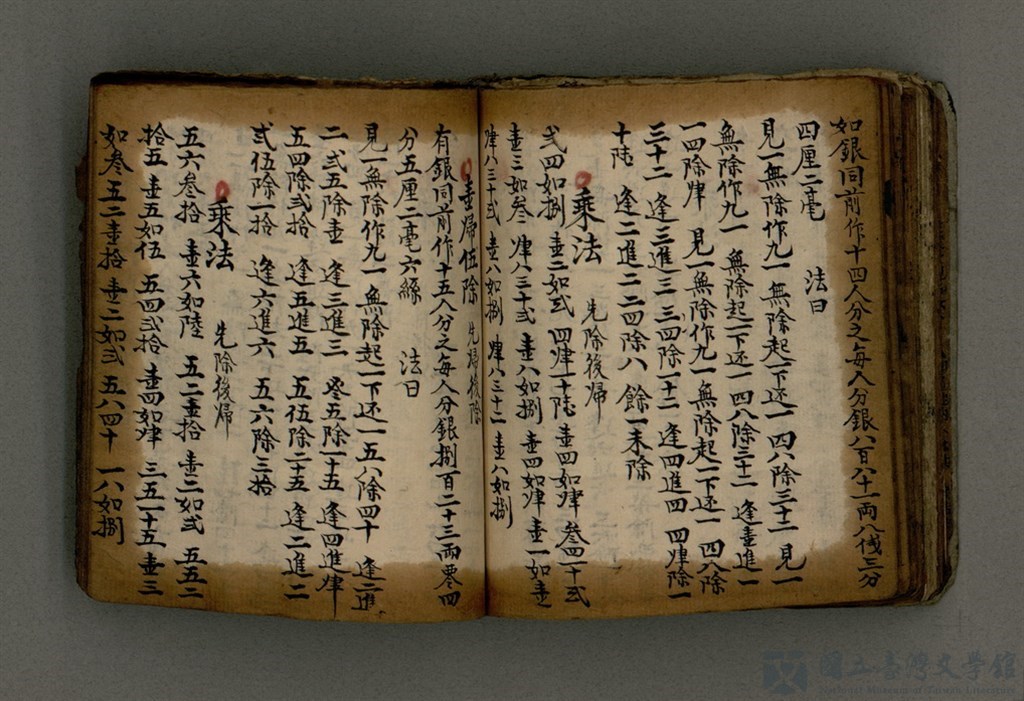 如銀同前作十四人分之每人分銀八百八十一両八伐三分
四厘二毫　法曰
見一無除作九一　無除起一下还一　四八除三十二　見一
無除作九一　無除起一下还一　四八除三十二　逢壹進一
一四除肆　見一無除作九一　無除起一下还一　四八除
三十二　逢三進三　三四除一十二　逢四進四　四肆除一
十陸　逢二進二　二四除八　餘一未除
乘法　先除後帰
弍四如捌　壹二如弍　四肆一十陸　壹四如肆　叁四一十弍
壹三如叁　肆八三十弍　壹八如捌　壹四如肆　壹一如壹
肆八三十弍　壹八如捌　肆八三十二　壹八如捌
壹帰伍除　先帰後除
有銀同前作十五人分之每人分銀捌百二十三両零四
分五厘二毫六絲　法曰
見一無除作九一　無除起一下还一　五八除四十　逢二進
二　弍五除壹　逢三進三　叁五除一十五　逢四進肆
五四除弍拾　逢五進五　五伍除二十五　逢二進二
弍伍除一拾　逢六進六　五六除三拾
乘法　先除後帰
五六叁拾　壹六如陸　五二壹拾　壹二如弍　五五二
拾五　壹五如伍　五四弍拾　壹四如肆　三五一十五　壹三
如叁　五二壹拾　壹二如弍　五八四十　一八如捌
國立臺灣文學館
National Museum of Taiwan Literature